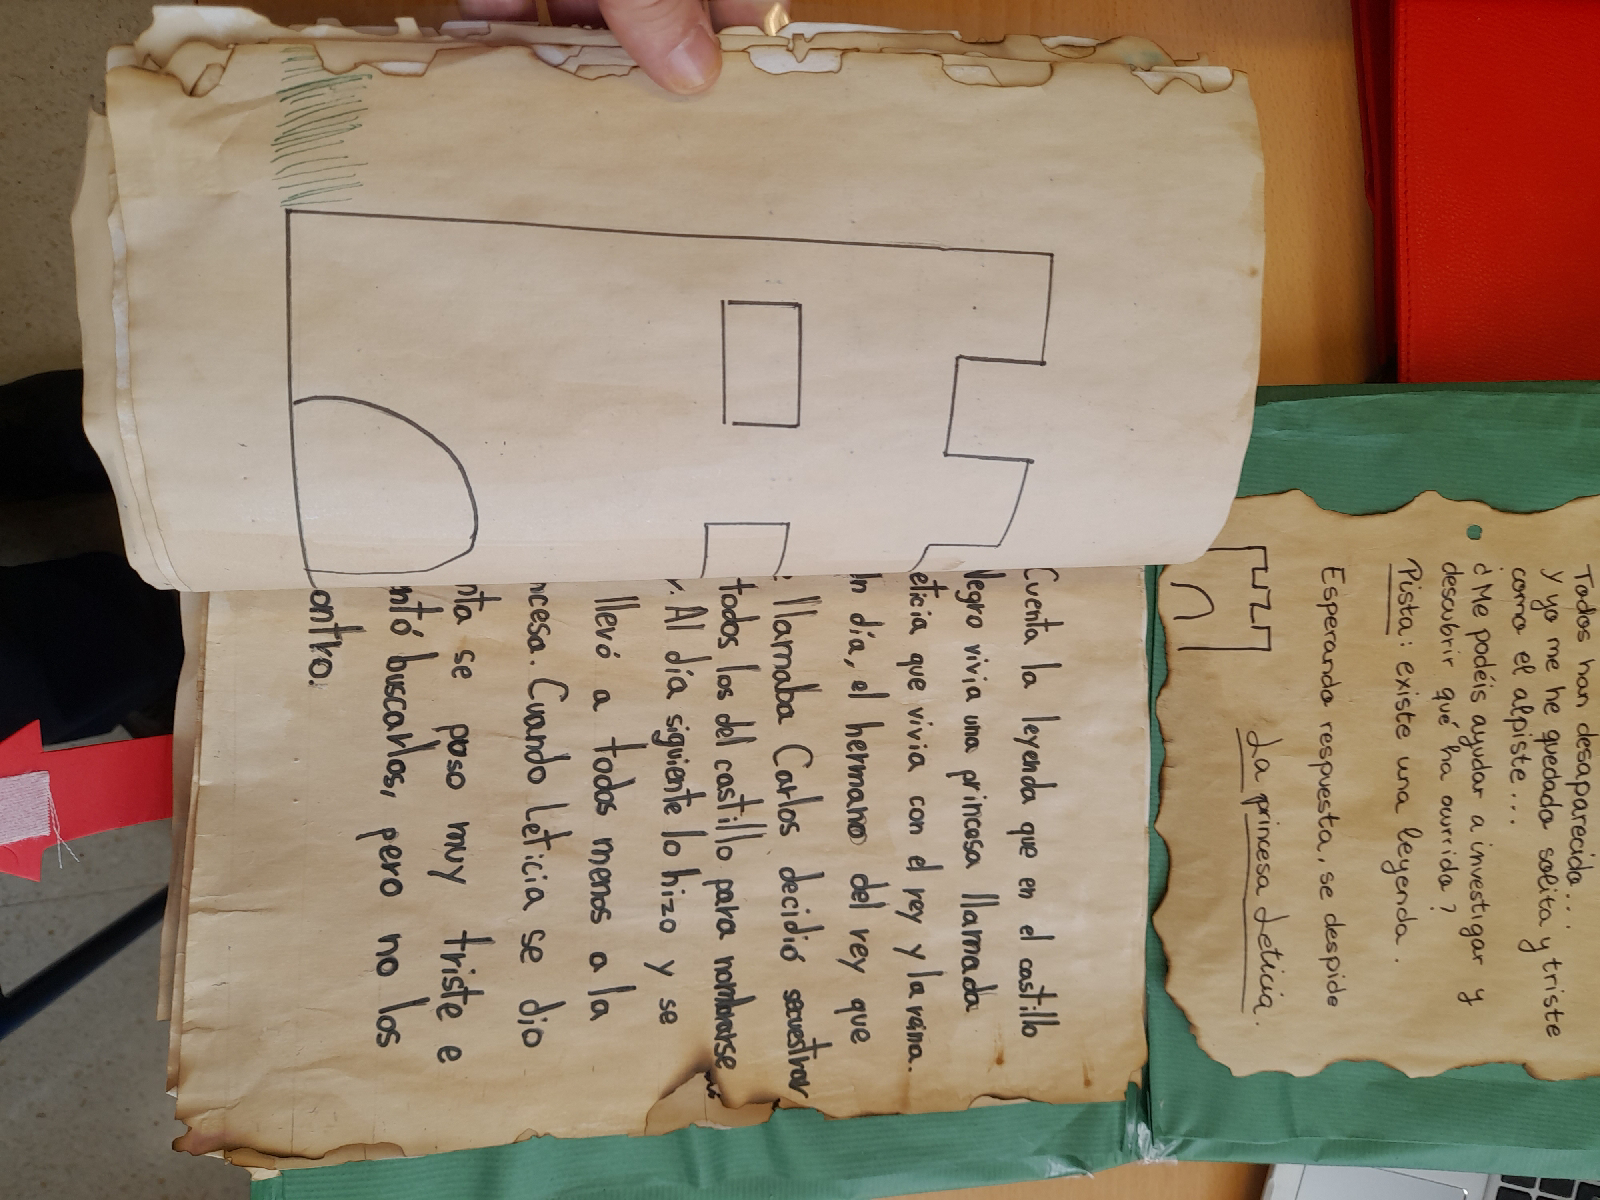 Todos han desaparecido...
y yo me he quedado solita y triste
como el alpiste...
¿Me podéis ayudar a investigar y
descubrir qué ha ocurrido?
Pista: existe una leyenda.
Esperando respuesta, se despide
La princesa Leticia.
Cuenta la leyenda que en el castillo
Negro vivia una princesa llamada
eticia que vivia con el rey y la reina.
Un día, el hermano del rey que
llamaba Carlos decidió secuestrar
todos los del castillo para nombrarse
y. Al día siguiente lo hizo y se
llevó a todos menos a la
ncesa. Cuando Leticia se dio
nta se poso muy triste e
ntó buscarlos, pero no los
ontro.